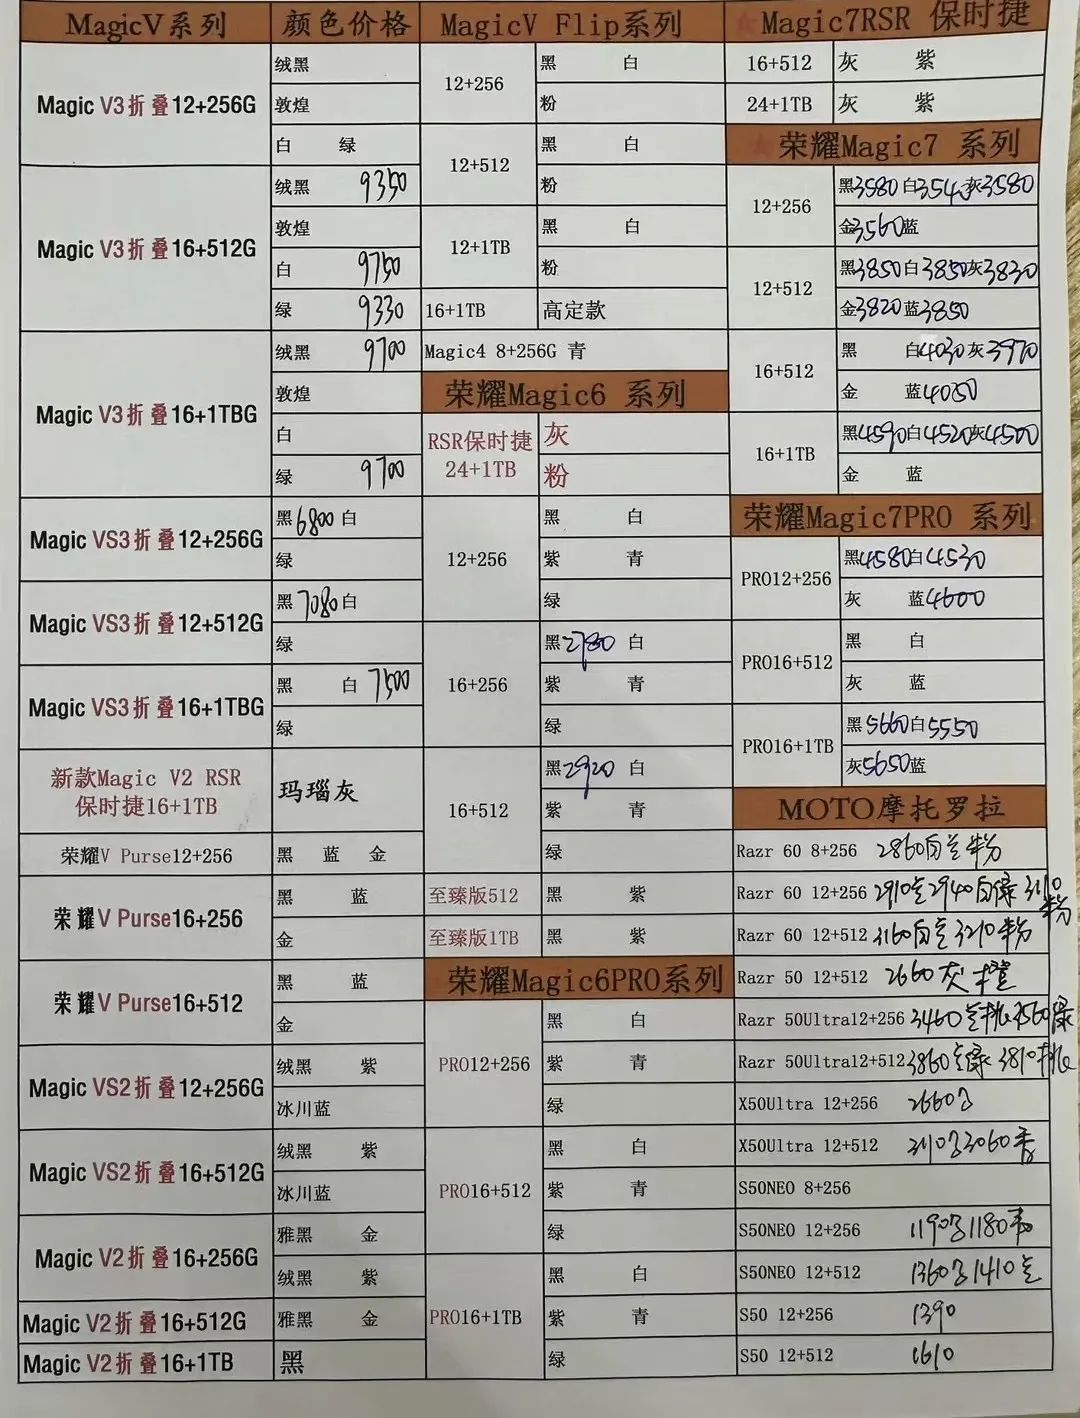 MagicV系列 颜色价格
Magic V3折叠12+256G
绒黑
敦煌
白 绿
Magic V3折叠16+512G
绒黑 9350
敦煌
白 9750
绿 9330
Magic V3折叠16+1TBG
绒黑 9700
敦煌
白
绿 9700
Magic VS3折叠12+256G
黑6800白
绿
Magic VS3折叠12+512G
黑7080白
绿
Magic VS3折叠16+1TBG
黑 白7500
绿
新款Magic V2 RSR
保时捷16+1TB
玛瑙灰
荣耀V Purse12+256 黑 蓝 金
荣耀V Purse16+256
黑 蓝
金
荣耀V Purse16+512
黑 蓝
金
Magic VS2折叠12+256G
绒黑 紫
冰川蓝
Magic VS2折叠16+512G
绒黑 紫
冰川蓝
Magic V2折叠16+256G
雅黑 金
绒黑 紫
Magic V2折叠16+512G 雅黑 金
Magic V2折叠16+1TB 黑
MagicV Flip系列
12+256
黑 白
粉
12+512
黑 白
粉
12+1TB
黑 白
粉
16+1TB 高定款
Magic4 8+256G 青
荣耀Magic6 系列
RSR保时捷
24+1TB
灰
粉
12+256
黑 白
紫 青
绿
16+256
黑2780 白
紫 青
绿
16+512
黑2920 白
紫 青
绿
至臻版512 黑 紫
至臻版1TB 黑 紫
荣耀Magic6PRO系列
PRO12+256
黑 白
紫 青
绿
PRO16+512
黑 白
紫 青
绿
PRO16+1TB
黑 白
紫 青
绿
Magic7RSR 保时捷
16+512 灰 紫
24+1TB 灰 紫
荣耀Magic7 系列
12+256
黑3580白354灰3580
金3560蓝
12+512
黑3850白3850灰3830
金3820蓝3850
16+512
黑 白4030灰3970
金 蓝4050
16+1TB
黑4590白4520灰4500
金 蓝
荣耀Magic7PRO 系列
PRO12+256
黑4580白4530
灰 蓝4600
PRO16+512
黑 白
灰 蓝
PRO16+1TB
黑5660白5550
灰5650蓝
MOTO摩托罗拉
Razr 60 8+256 2860白兰粉
Razr 60 12+256 2910兰2940白绿3110粉
Razr 60 12+512 3160白兰3210粉
Razr 50 12+512 2660灰橙
Razr 50Ultra12+256 3460兰桃3560绿
Razr 50Ultra12+512 3860兰绿 3810桃
X50Ultra 12+256 2660
X50Ultra 12+512 3110 3060
S50NEO 8+256
S50NEO 12+256 1190 1180
S50NEO 12+512 1360 1410兰
S50 12+256 1390
S50 12+512 1610